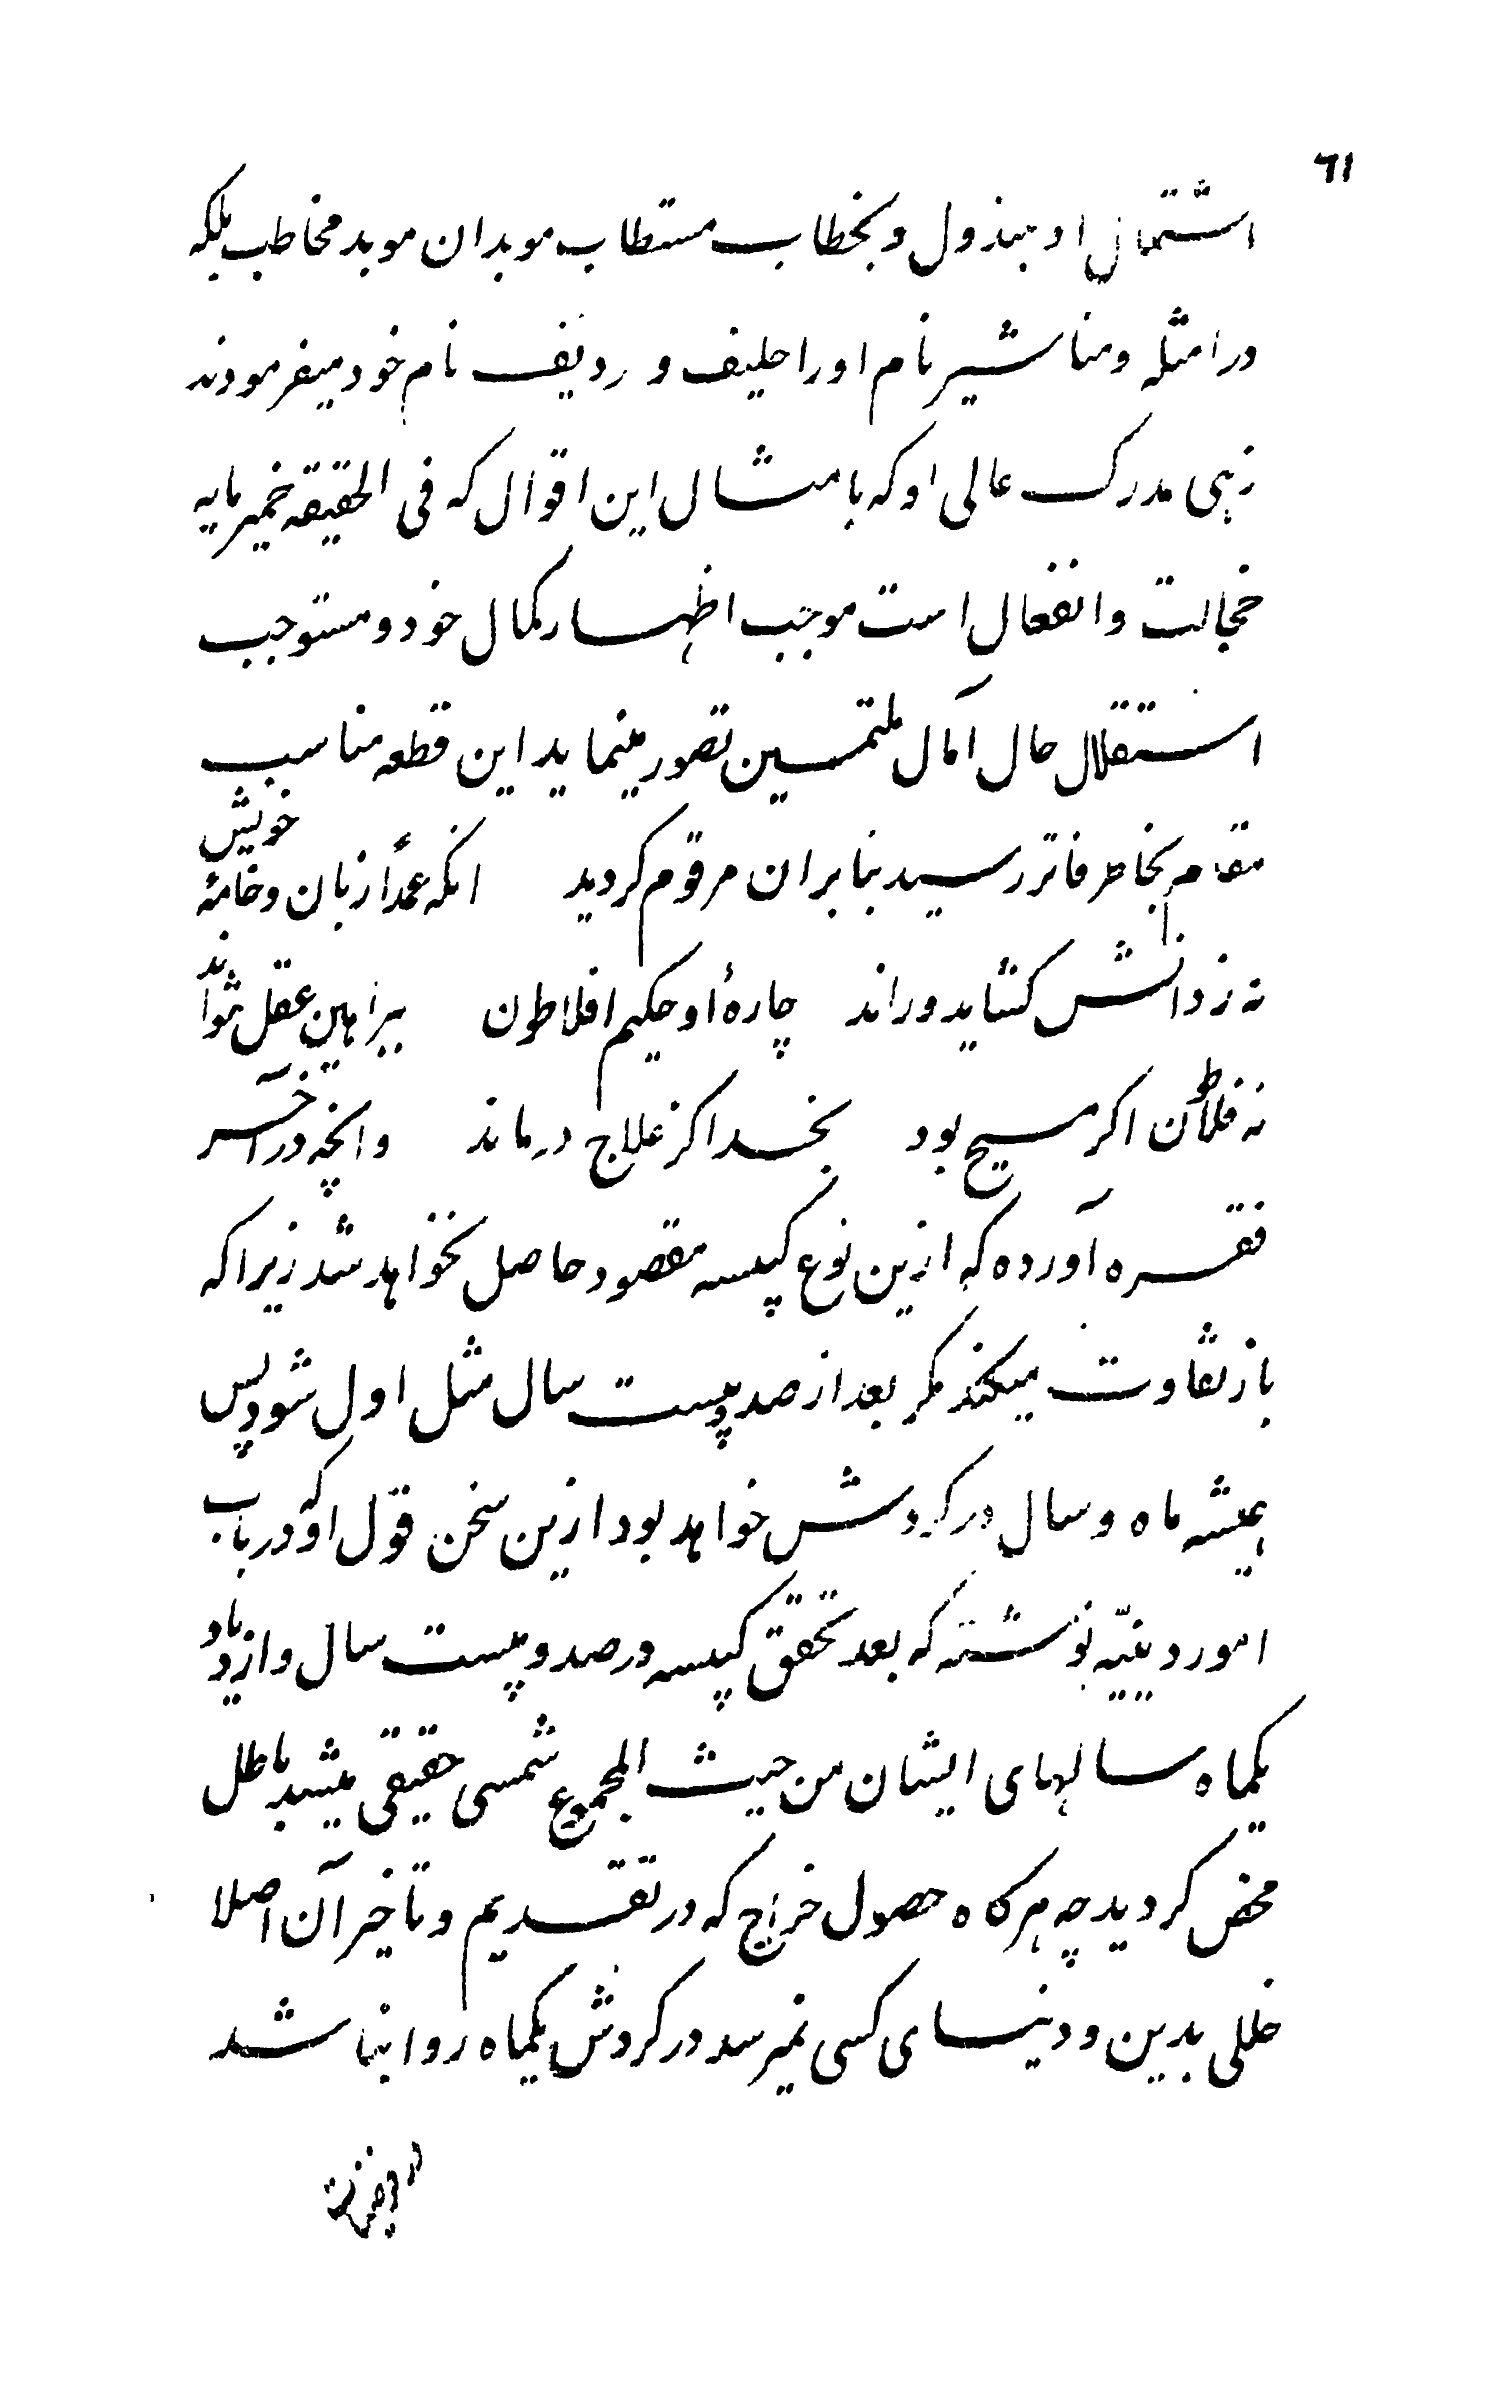 ٦١
استمالی او مبذول و بخطاب مستطاب موبدان موبد مخاطب بلکه
در امثله و مناشیر نام او را حلیف و ردیف نام خود میفرمودند
زهی مدرک عالی او که با مثال این اقوال که فی الحقیقه خمیر مایه
خجالت و انفعال است موجب اظهار کمال خود و مستوجب
استقلال حال آمال ملتمسین تصور مینماید این قطعه مناسب
مقام بخاطر فاتر رسید بنابران مرقوم کردید انکه عمداً زبان و خامهٔ خویش
نه ز دانش کشاید و راند چارهٔ او حکیم افلاطون ببراهین عقل نتواند
نه فلاطن اکر مسیح بود بخدا کز علاج درماند و انچه در آخر
فقره آورده که ازین نوع کبیسه مقصود حاصل نخواهد شد زیرا که
باز تفاوت میکند مکر بعد از صد و بیست سال مثل اول شود پس
همیشه ماه و سال در کردش خواهد بود ازین سخن قول او که در باب
امور دینیّه نوشته که بعد تحقق کبیسه در صد و بیست سال و ازدیاد
یکماه سالهای ایشان من حیث المجموع شمسی حقیقی میشد باطل
محض کردید چه هرکاه حصول خراج که در تقدیم و تأخیر آن اصلا
خللی بدین و دنیای کسی نمیرسد در کردش یکماه روا نباشد